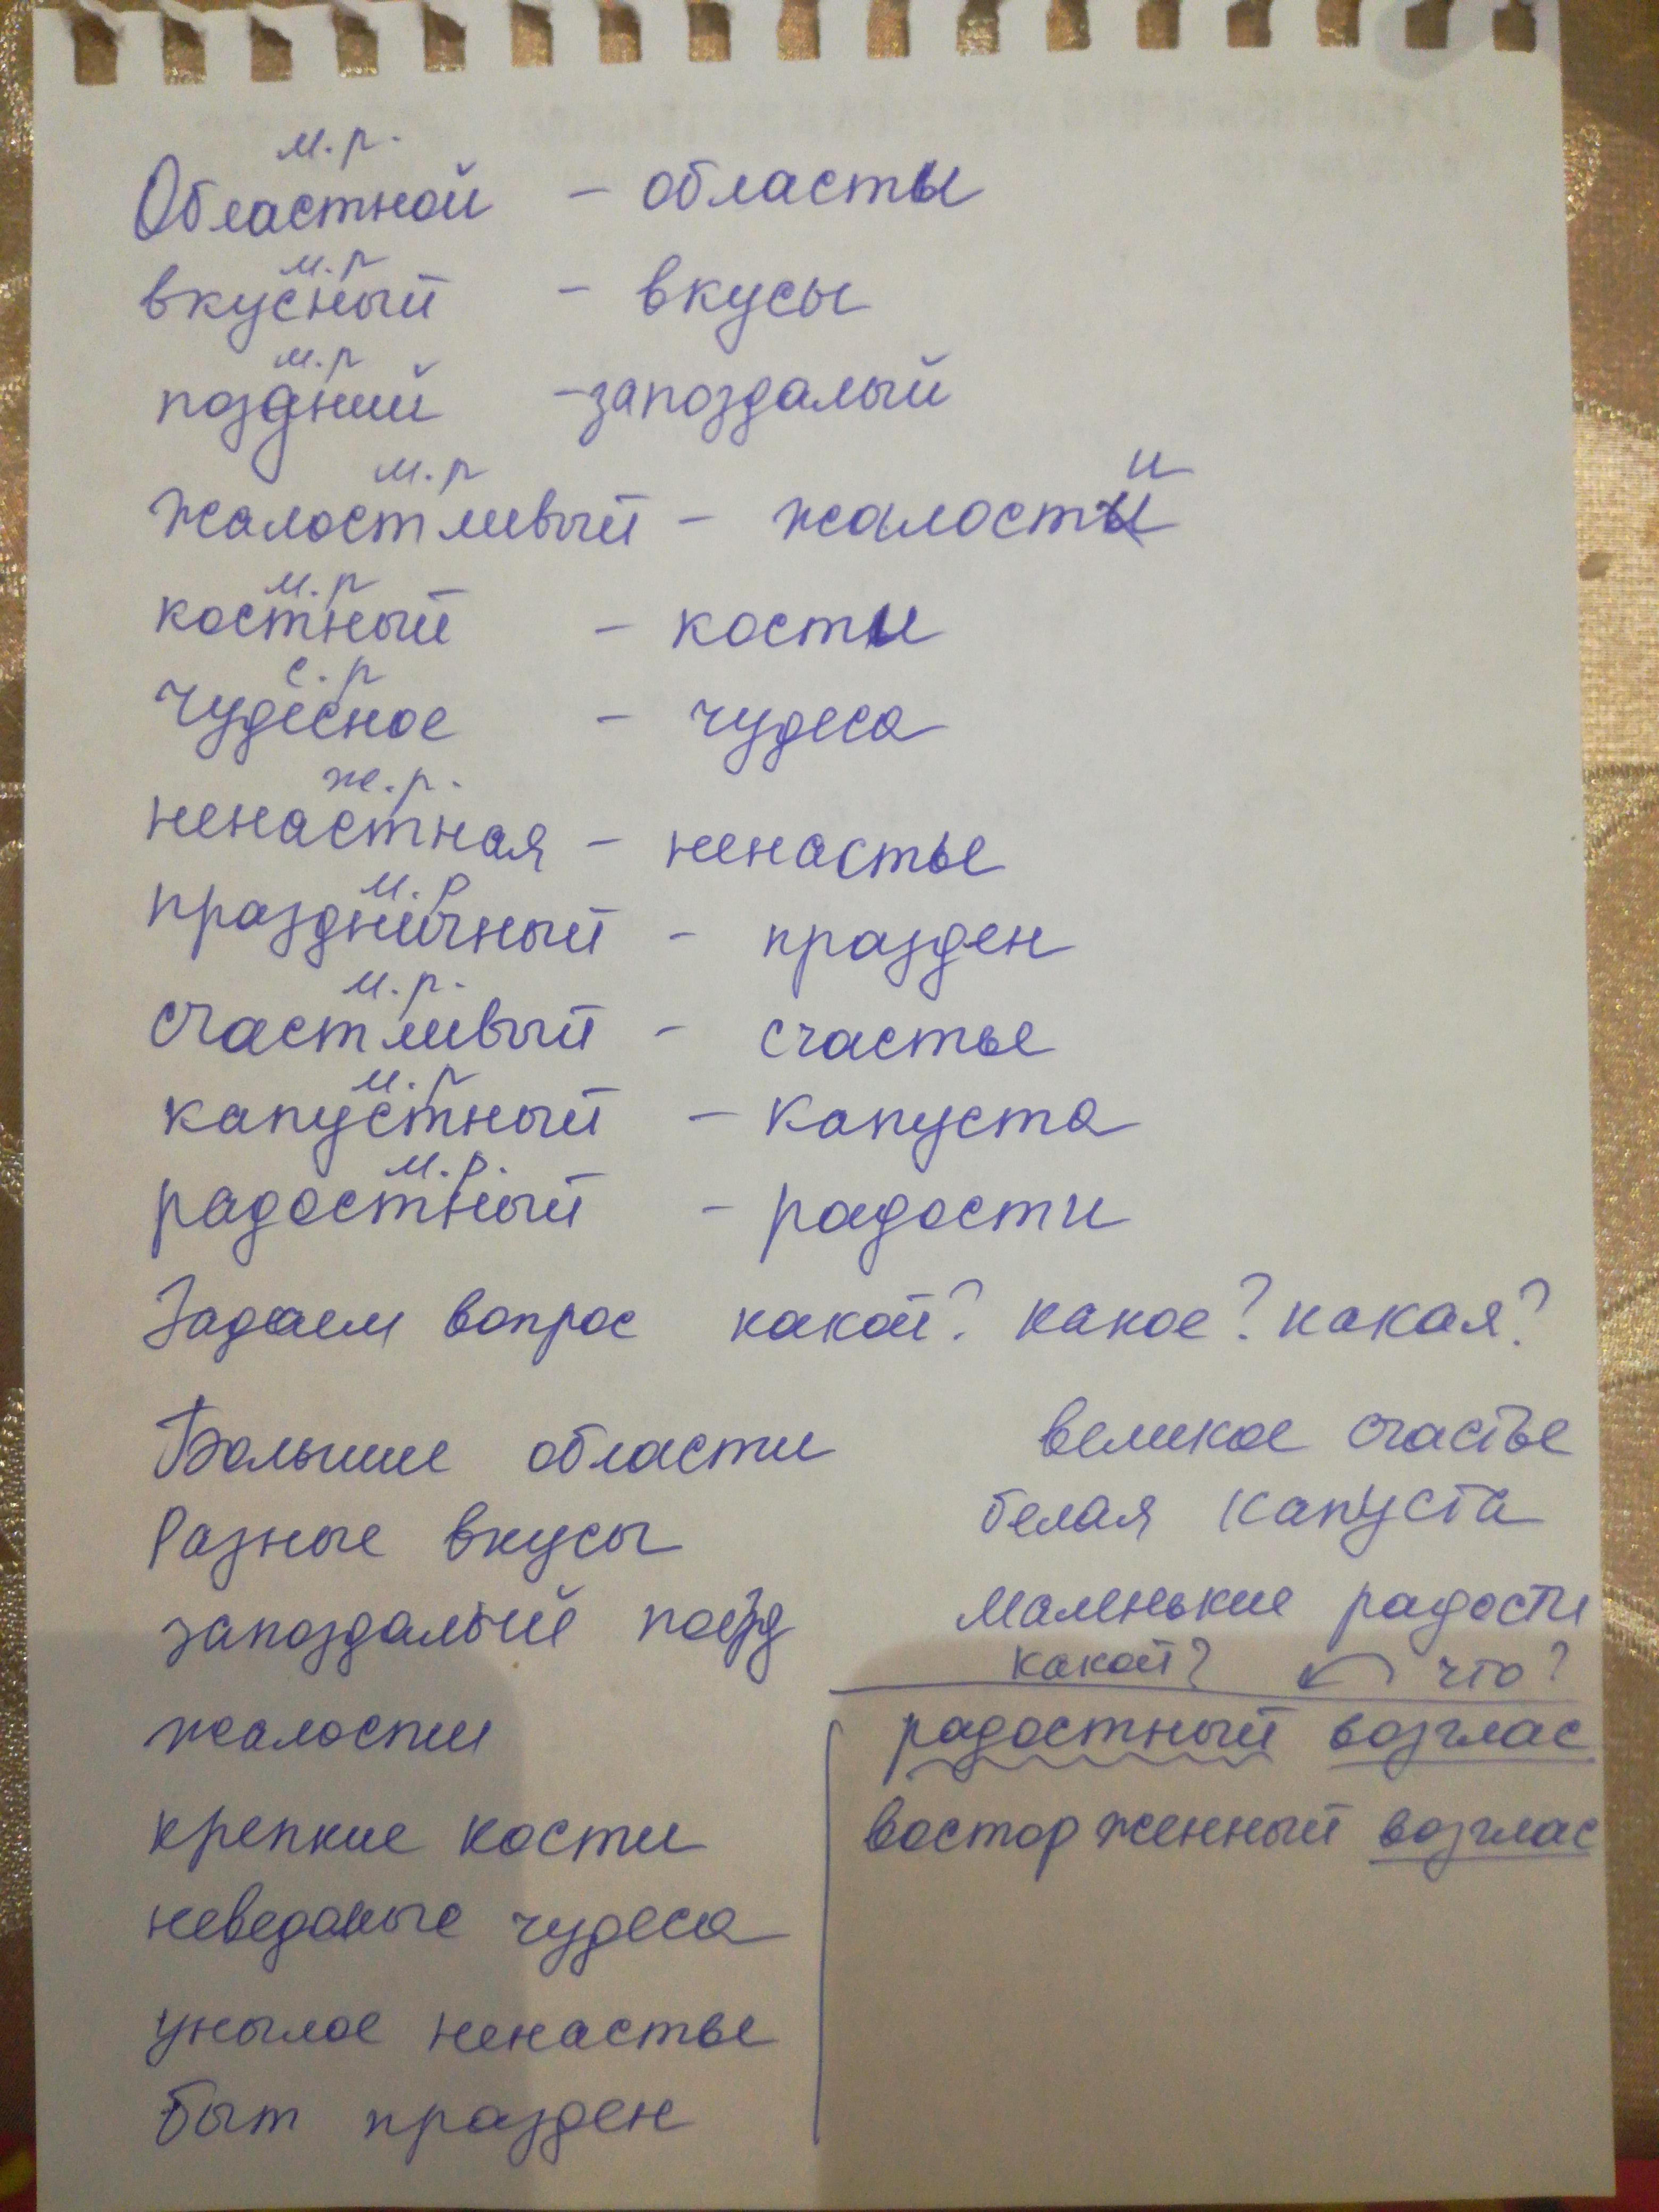 м.р.
Областной - области
м.р
вкусный - вкусы
м.р
поздний - запоздалый
м.р и
жалостливый - жалости
м.р
костный - кости
с.р
чудесное - чудеса
ж.р.
ненастная - ненастье
м.р
праздничный - празден
м.р.
счастливый - счастье
м.р
капустный - капуста
м.р.
радостный - радости
Задаем вопрос какой? какое? какая?
Большие области
Разные вкусы
запоздалый поезд
жалости
крепкие кости
неведомые чудеса
унылое ненастье
быт празден
великое счастье
белая капуста
маленькие радости
какой? что?
радостный возглас
восторженный возглас